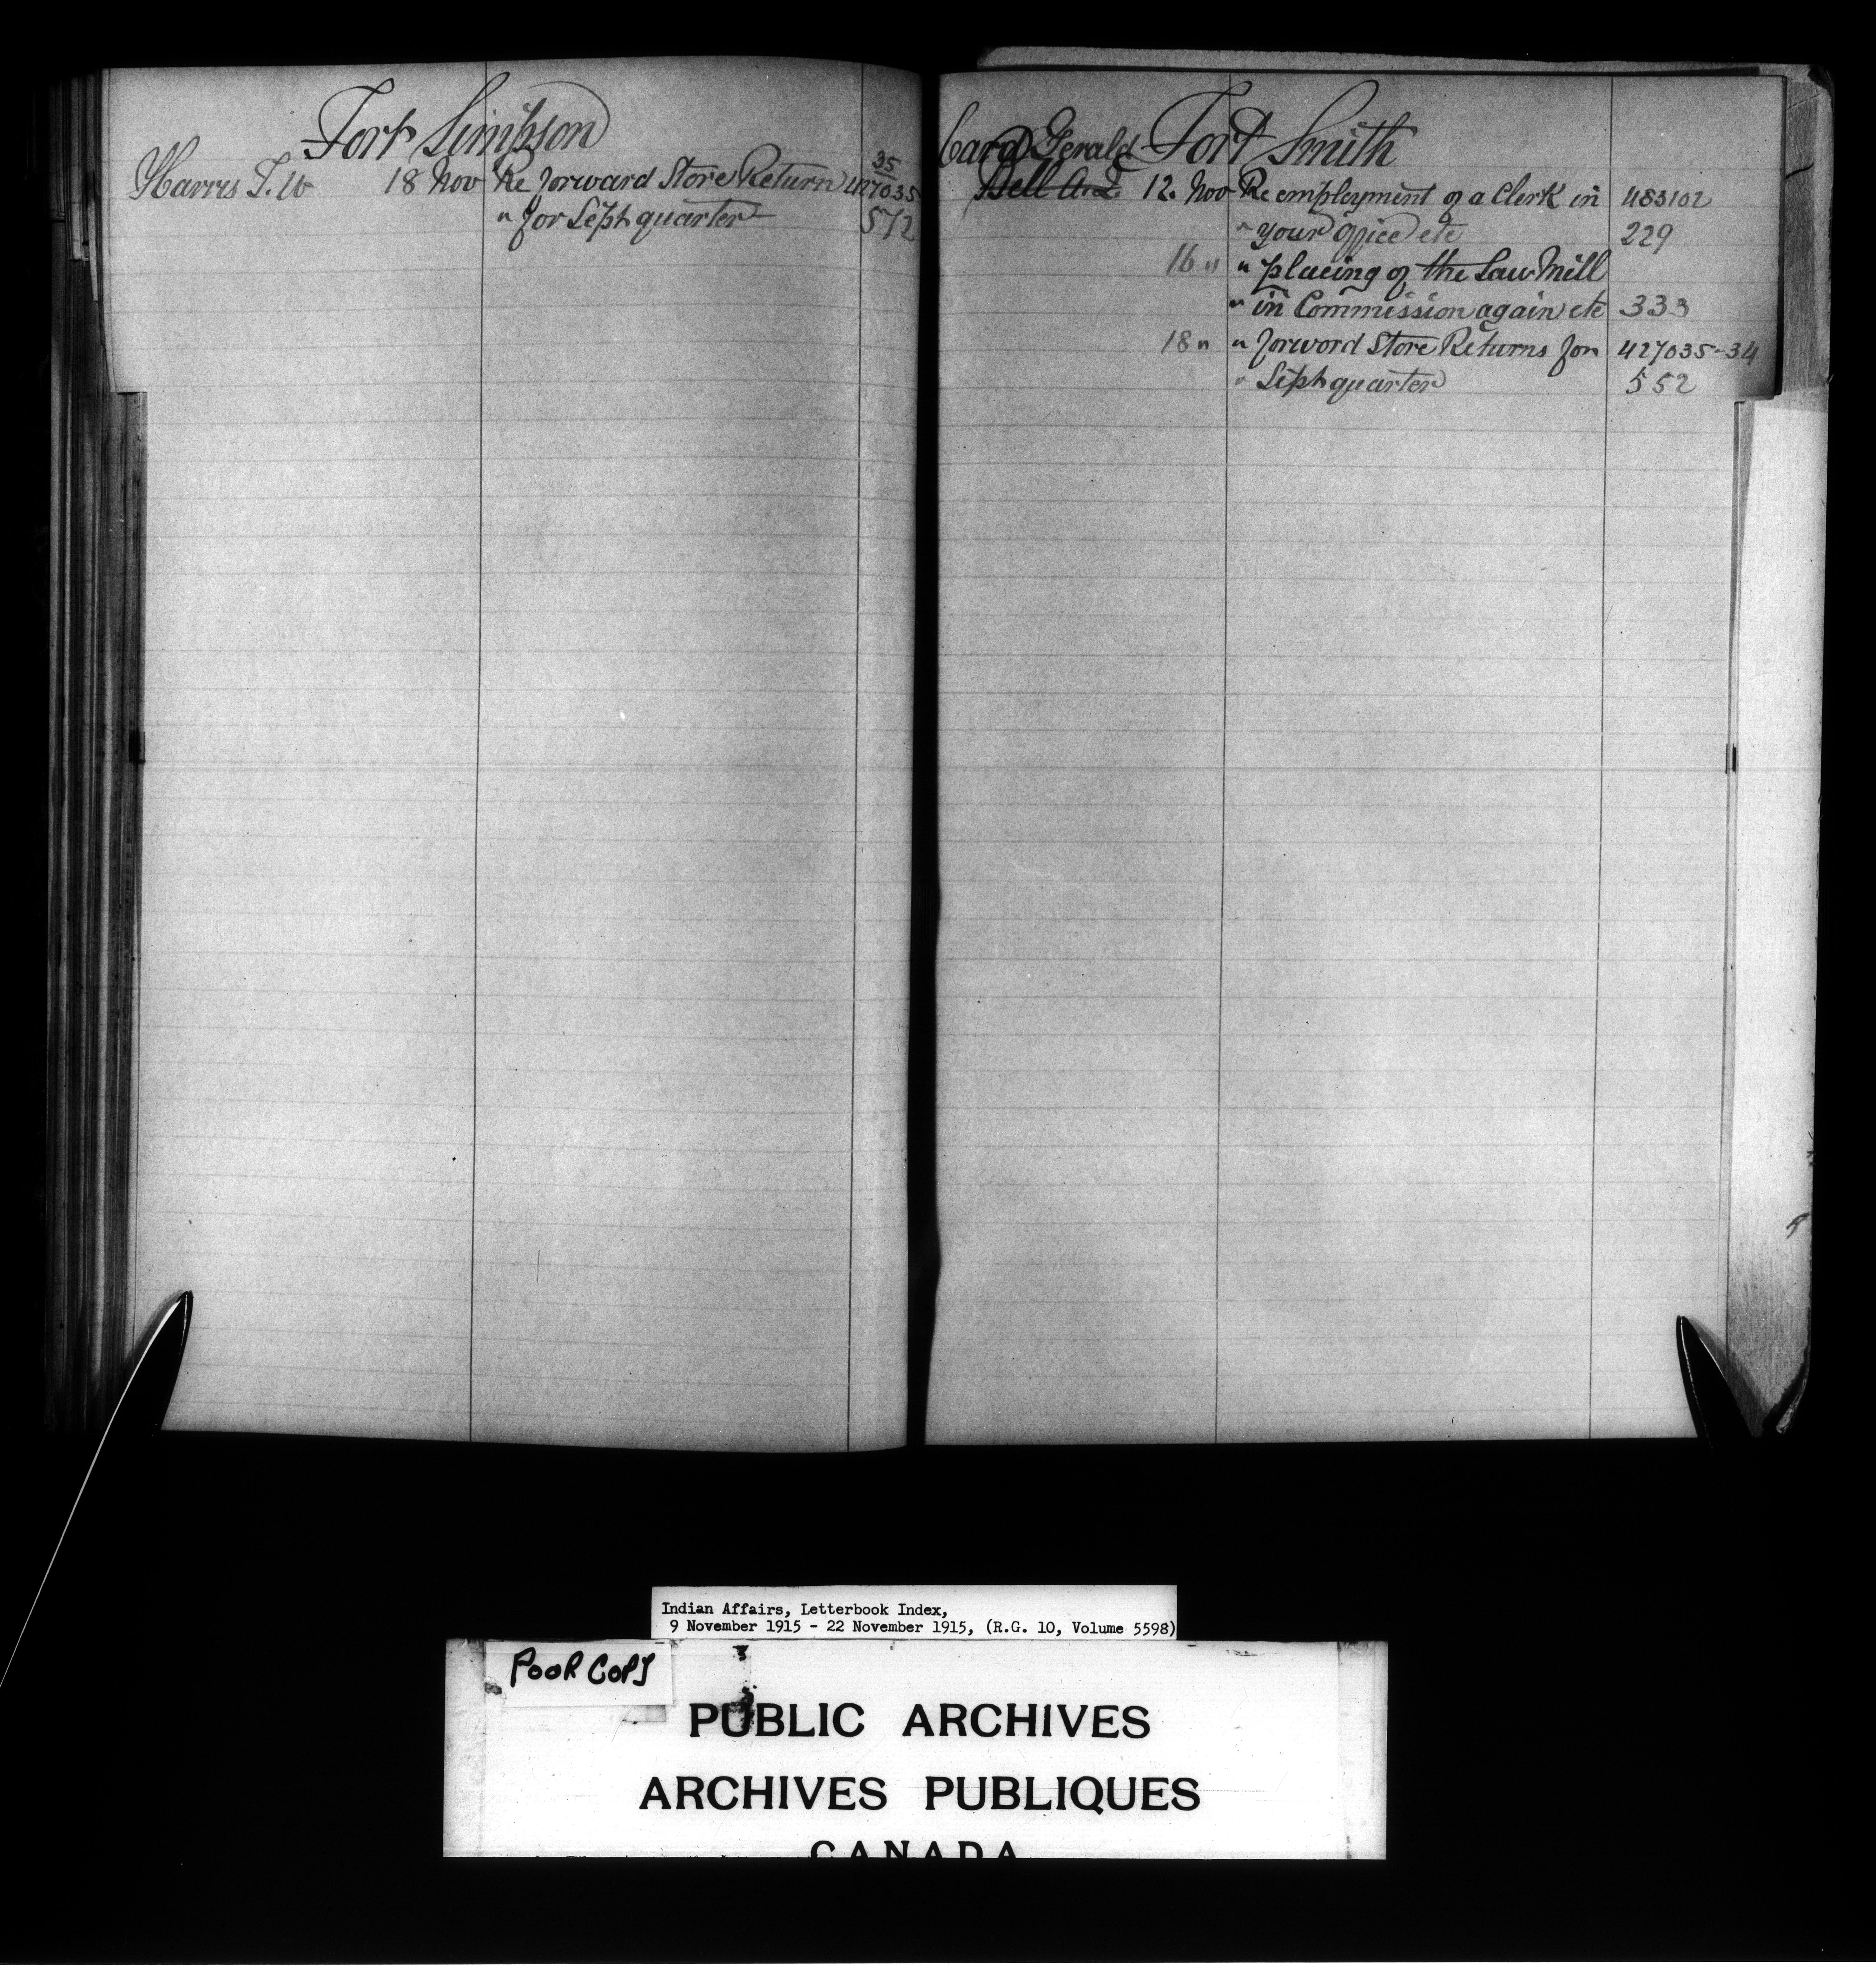 Fort Simpson
35
Harris T. W 18 Nov Re forward Store Return 427035
" for Sept quarter 572
Card Gerald Fort Smith
Bell A. J. 12. Nov Re employment of a Clerk in 483102
" your office etc 229
16 " " placing of the Saw Mill
" in Commission again etc 333
18 " " forword Store Returns for 427035-34
" Sept quarter 552
Indian Affairs, Letterbook Index,
9 November 1915 - 22 November 1915, (R.G. 10, Volume 5598)
POOR COPY
PUBLIC ARCHIVES
ARCHIVES PUBLIQUES
CANADA